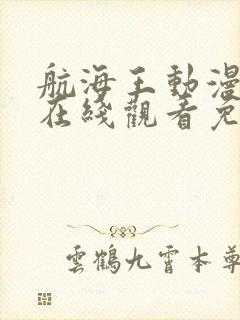 航海王動漫
在綫觀看免
雲鶴九霄本尊